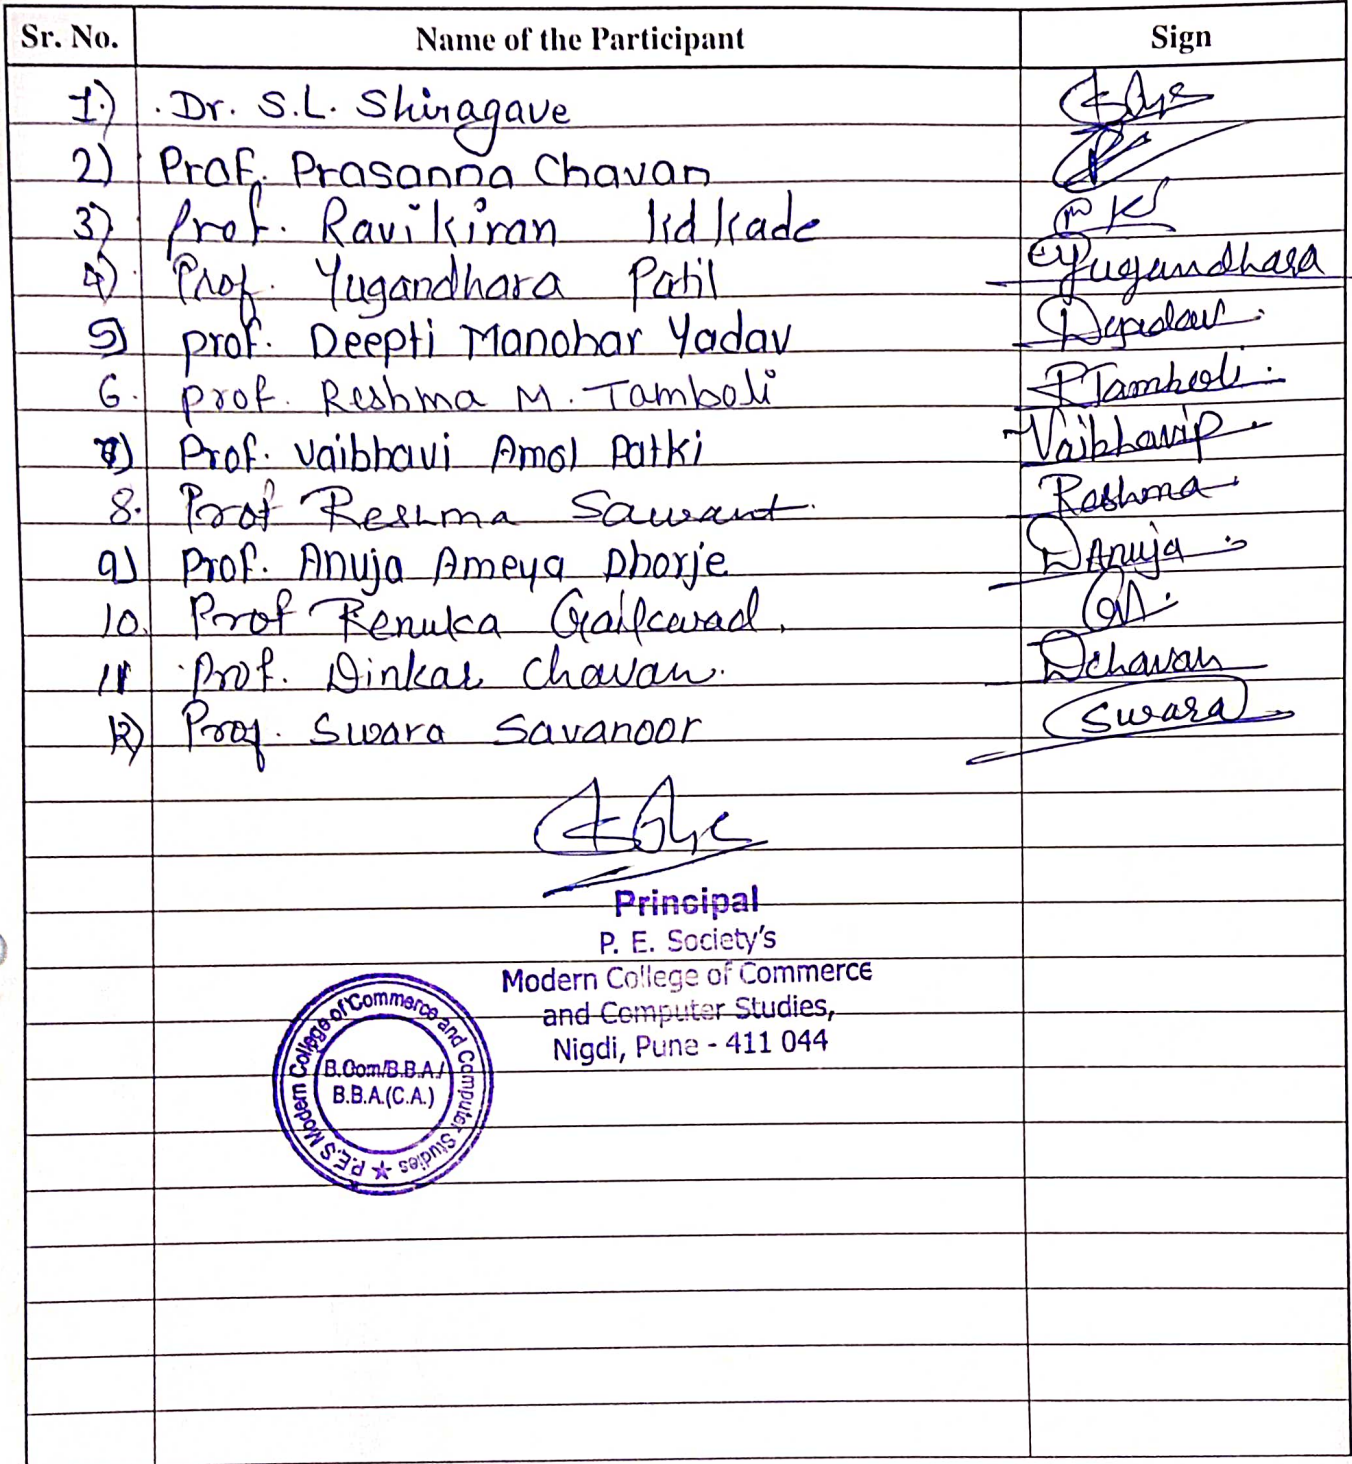 Sr. No. Name of the Participant Sign
1.) Dr. S.L. Shiragave
2) Prof. Prasanna Chavan
3) Prof. Ravikiran Kadkade
4) Prof. Yugandhara Patil Yugandhara
5) prof. Deepti Manohar Yadav Dyadav
6. prof. Reshma M. Tamboli RTamboli
7) Prof. Vaibhavi Amol Patki Vaibhavip
8. Prof Reshma Sawant Reshma
9) Prof. Anuja Ameya Dhorje DAnuja
10. Prof Renuka Gaikwad.
11 Prof. Dinkar Chavan. Dchavan
12) Prof. Swara Savanoor Swara
Principal
P. E. Society's
Modern College of Commerce
and Computer Studies,
Nigdi, Pune - 411 044
P.E.S Modern College of Commerce and Computer Studies
B.Com/B.B.A/
B.B.A.(C.A.)